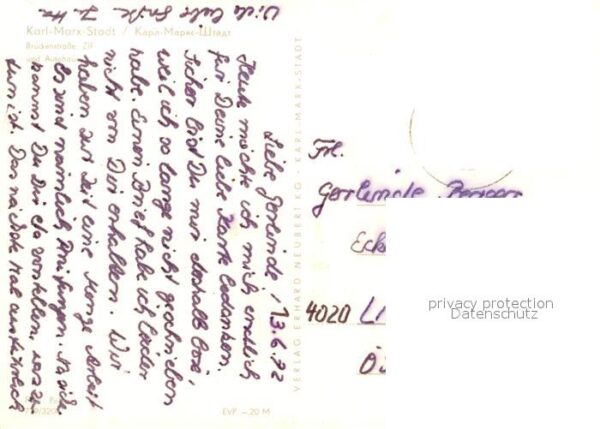 Karl-Marx-Stadt / Карл-Маркс-Штадт
Brückenstraße
und Autohaus
13.6.72
Liebe Gerlinde!
Heute möchte ich mich endlich
für Deine liebe Karte bedanken.
Sicher bist Du mir deshalb böse
weil ich so lange nicht geschrieben
habe. Einen Brief habe ich leider
nicht von Dir erhalten. Wir
haben zur Zeit eine Menge Arbeit
Es sind nämlich Prüfungen. Na ich
kannst Du Dir ja vorstellen, was
tun ist. Das nächste Mal ausführlich
Viele liebe Grüße
VERLAG ERHARD NEUBERT KG · KARL-MARX-STADT
EVP –.20 M
Frl.
Gerlinde
4020
privacy protection
Datenschutz